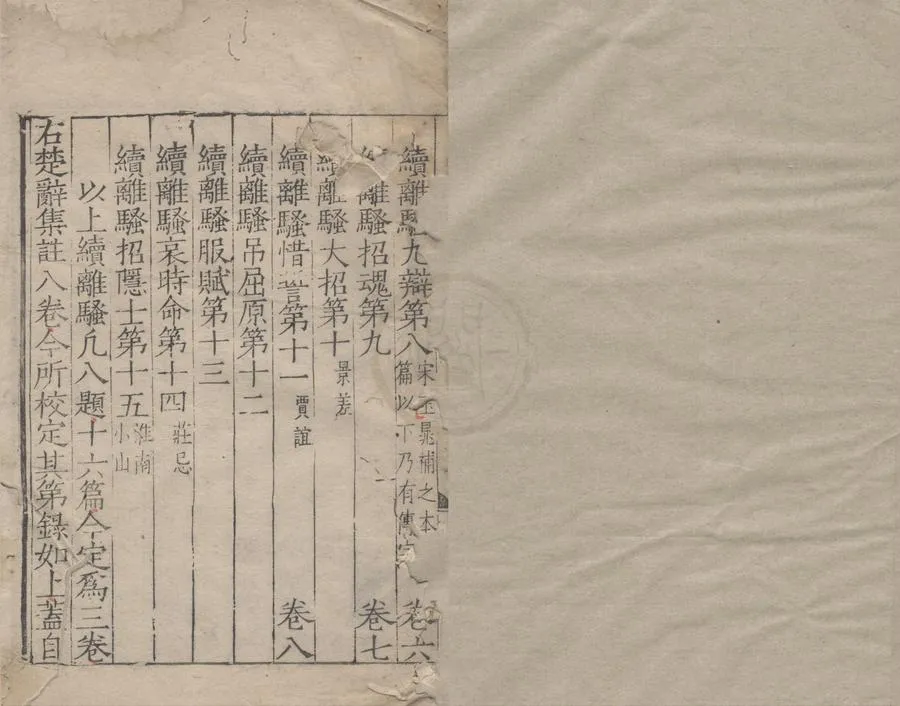 續離騷九辯第八 宋玉晁補之本篇以下乃有傳 卷六
續離騷招魂第九 卷七
續離騷大招第十 景差
續離騷惜誓第十一 賈誼 卷八
續離騷吊屈原第十二
續離騷服賦第十三
續離騷哀時命第十四 莊忌
續離騷招隱士第十五 淮南小山
以上續離騷凡八題十六篇今定爲三卷
右楚辭集註八卷今所校定其第錄如上蓋自